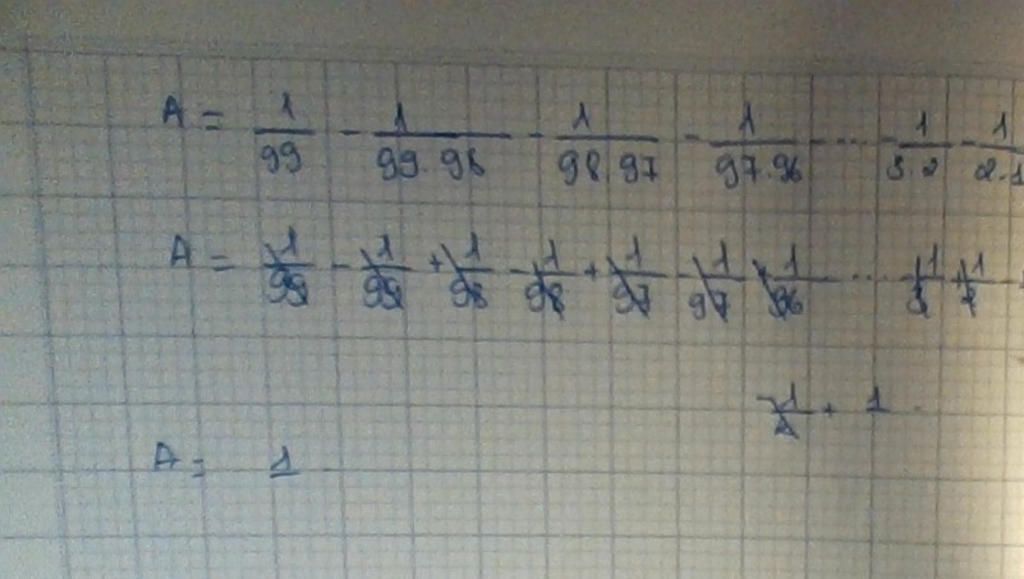 A = 1/99 - 1/99.98 - 1/98.97 - 1/97.96 ... - 1/3.2 - 1/2.1
A = 1/99 - 1/99 + 1/98 - 1/98 + 1/97 - 1/97 1/96 ...
+ 1
A = 1